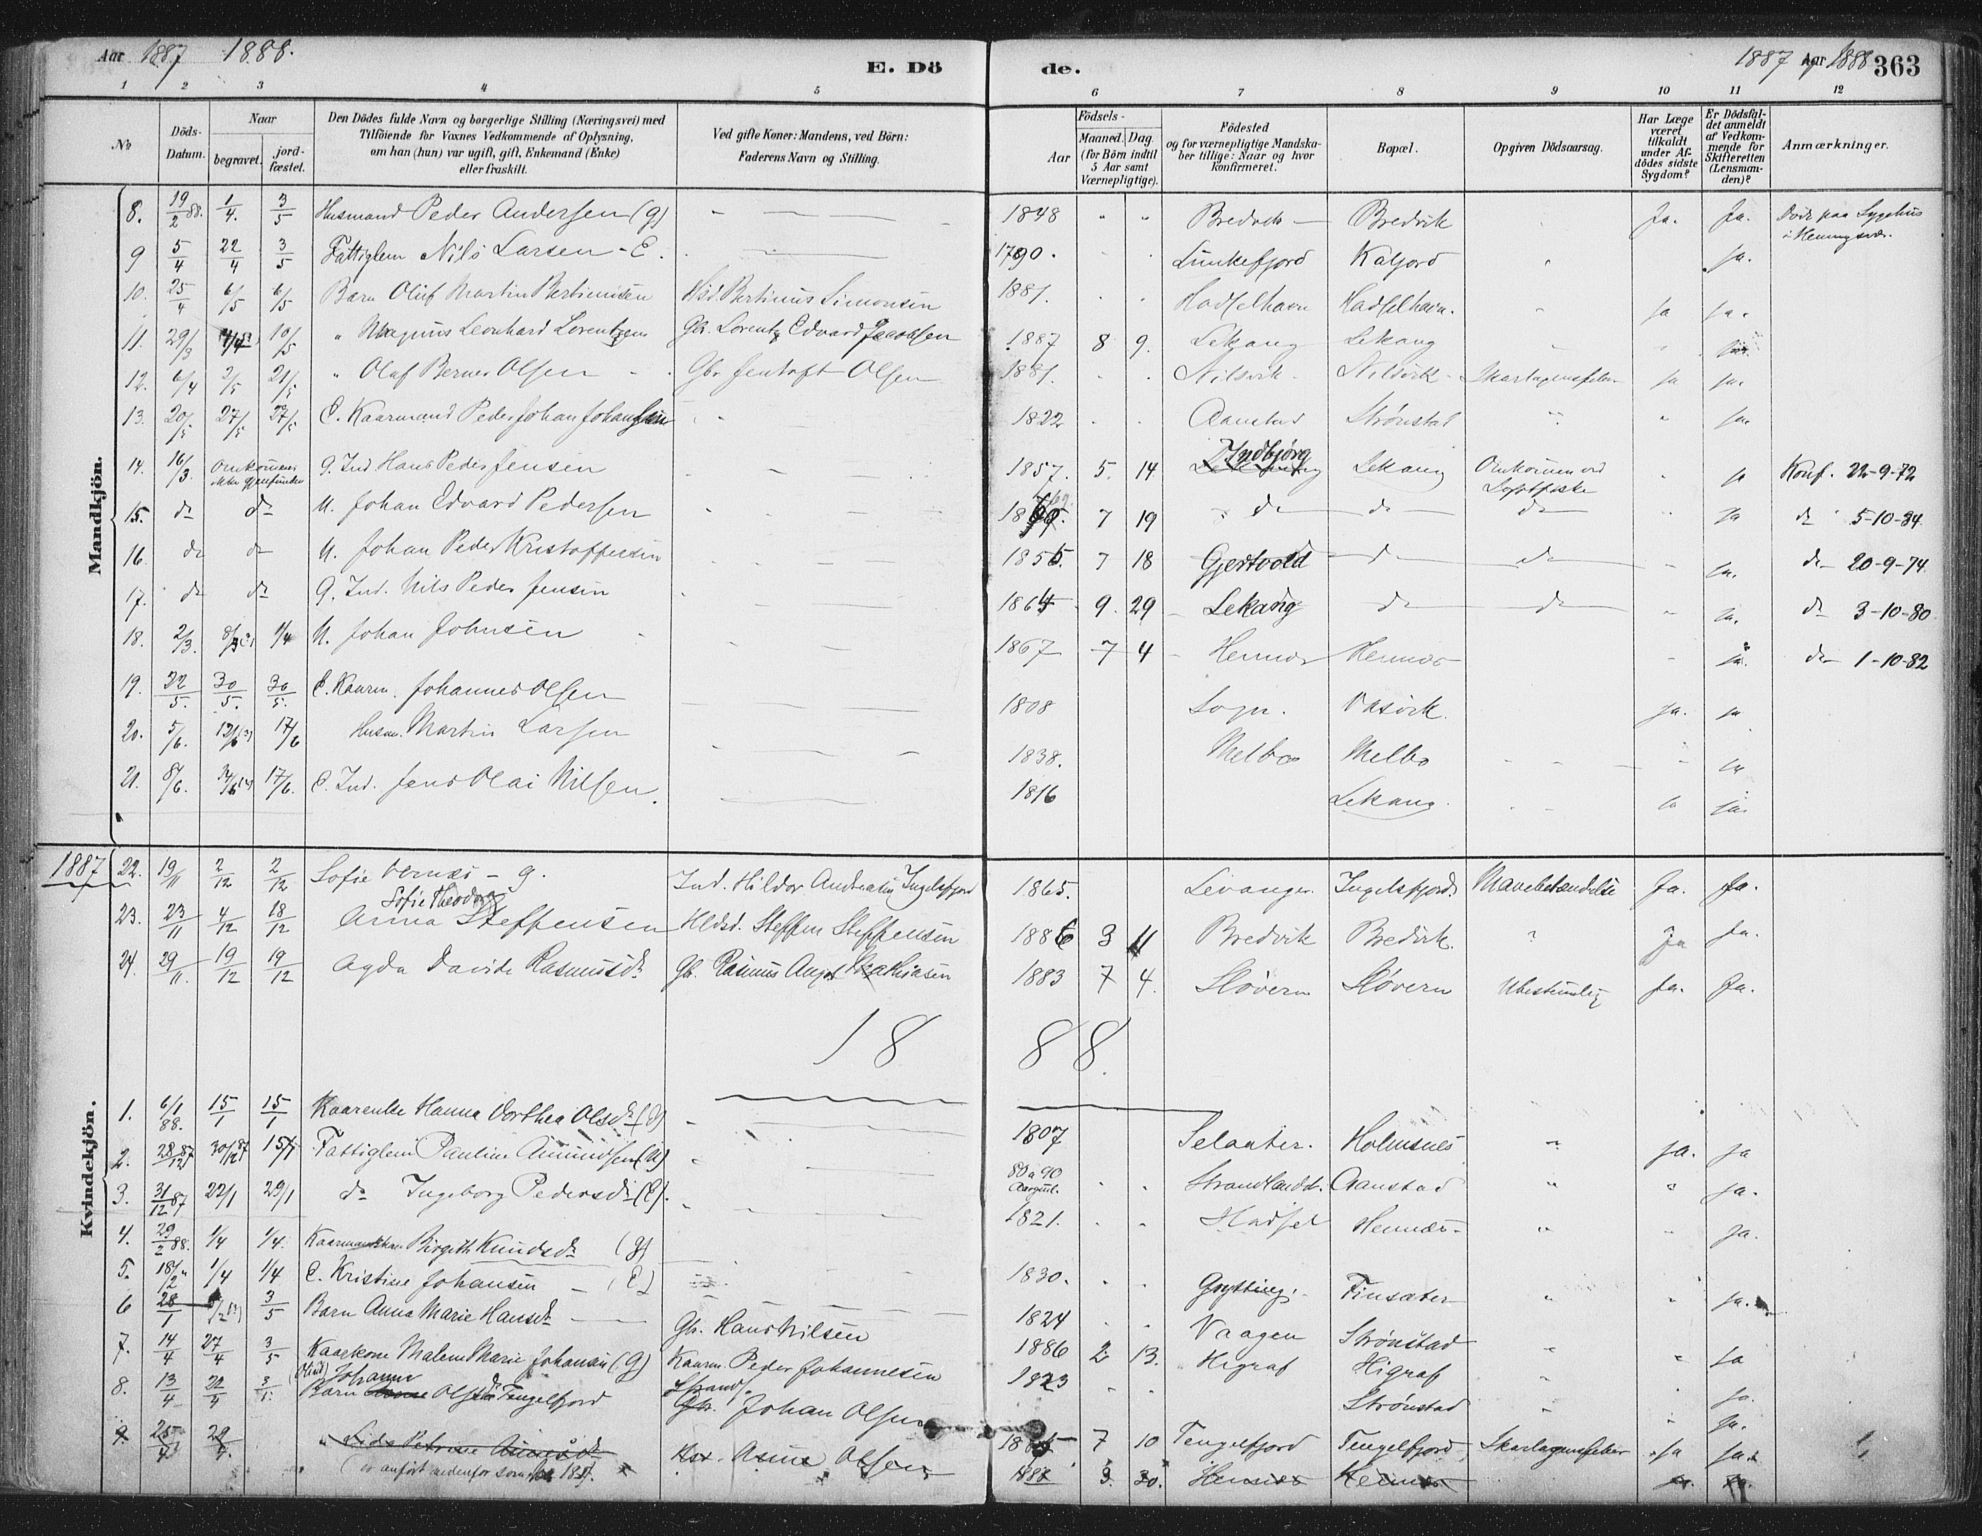 Aar 1887 1888. E. Dö de. 1887 og Aar 1888 363
1 2 3 4 5 6 7 8 9 10 11 12
№
Döds-Datum.
Naar
begravet.
jord-fæstet.
Den Dödes fulde Navn og borgerlige Stilling (Næringsvei) med
Tilföiende for Voxnes Vedkommende af Oplysning,
om han (hun) var ugift, gift, Enkemand (Enke)
eller fraskilt.
Ved gifte Koner: Mandens, ved Börn:
Faderens Navn og Stilling.
Födsels-
Aar
Maaned. Dag.
(for Börn indtil
5 Aar samt
Værnepligtige).
Födested
og for værnepligtige Mandska-
ber tillige: Naar og hvor
konfirmeret.
Bopæl.
Opgiven Dödsaarsag.
Har Læge
været
tilkaldt
under Af-
dödes sidste
Sygdom?
Er Dödsfal-
det anmeldt
af Vedkom-
mende for
Skifteretten
(Lensman-
den)?
Anmærkninger.
Mandkjön.
8. 19/2 88. 1/4. 3/5 Husmand Peder Andersen (g) 1848 Bredvik Ja. Ja. Döde paa Sygehus
i Henningsvær.
9 5/4 22/4 3/5 Fattiglem Nils Larsen - E. 1790. Lunkefjord Kaljord Ja.
10. 25/4 6/5 6/5 Barn Oluf Martin Bertinusen Hsd. Bertinus Simonsen 1881. Hadselhavn Hadselhavn. ja ja.
11. 29/3 10/5 " Magnus Leonhard Lorentzen Gbr. Lorentz Edvard Jacobsen 1887 8 9. Lekang Lekang
12. 6/4 2/5 21/5 " Olaf Berner Olsen Gbr Jentoft Olsen 1881. Nilsvik Nilsvik Skarlagensfeber ja ja.
13. 20/5 27/5 27/5 E. Kaarmand Peder Johan Johansen 1822 Aanstad Strönstad ja.
14. 16/3 Omkommen ikke gjenfunden G. Ind. Hans Peder Jensen 1857. 5. 14 Indbjörg Lekang Omkommen ved
Lofotfiske ja Konf. 22-9-72
15. do do U. Johan Edvard Pedersen 7 19 do do do Ja do 5-10-84
16 do do U. Johan Peder Kristoffersen 1855. 7 18 Gjertvold do do ja. do 20-9-74
17. do do G. Ind. Nils Peder Jensen 1864 9. 29 Lekang do do ja. do 3-10-80
18. 2/3. 1/4 U. Johan Johnsen 1867 7 4 Hennes Hennes ja. do 1-10-82
19. 22/5. 30/5. 30/5. E. Kaarm. Johannes Olsen 1808 Sogn. Vasvik. ja. ja
20. 5/6. 17/6 Husm. Martin Larsen 1838. Melbo Melbo ja
21. 8/6. 17/6. E. Ind. Jens Olai Nilsen. 1816 Lekang. ja ja.
Kvindekjön.
1887 22. 19/11 2/12 2/12 Sofie - g. Ind. Hildor Andreasen Ingelsfjord 1865. Levanger Ingelsfjord. Mavebetændelse Ja. Ja.
23. 23/11 4/12 18/12 Sofie Theodora
Anna Steffensen Hldsd. Steffen Steffensen 1886 3 11 Bredvik Bredvik. " Ja Ja.
24. 29/11. 19/12 19/12 Agda Davida Rasmusdr Gb. Rasmus August Mathiasen 1883 7 4. Stövern Stövern Ubestemlig Ja. Ja.
18 88.
1. 6/1 88. 15/1 15/1 Kaarenke Hanna Dorthea Olsdr 1807 Selanter. Holmsnes " ja. ja
2. 28/12 87 30/12 87 15/1 Fattiglem Pauline Amundsen (U) 80 a 90
Aargml. Strandlandet. Aanstad " " ja.
3. 31/12 87 22/1 29/1 do Ingeborg Pedersdr (E). 1821. Hadsel Hennes " ja.
4. 29/2 88. 1/4 1/4. Birgith Knudsdr (g) 1830. Grytting. Finsæter " ja.
5. 18/2 1/4 1/4 E. Kristine Johansen - (E) 1824 Vaagen Strönstad " ja
6 28/1 3/5 Barn Anna Marie Hansdr Gbr. Hans Nilsen 1886 2 13. Higraf Higraf " ja.
7. 14/4 27/4 3/5 Kaarkone Malene Marie Johansen (G) Kaarm. Peder Johannesen
Strand. 1823 Strönstad " Ja.
8. 13/4 22/4 Johanna
Barn Olsdr Tengelfjord Gbr. Johan Olsen 7 10 Tengelfjord Tengelfjord Skarlagensfeber ja ja.
9. 25/4 29/4. " Petrine
(er anfört nedenfor som Hsd. Asmus Olsen 3. 30. Hennes Hennes ja. ja.